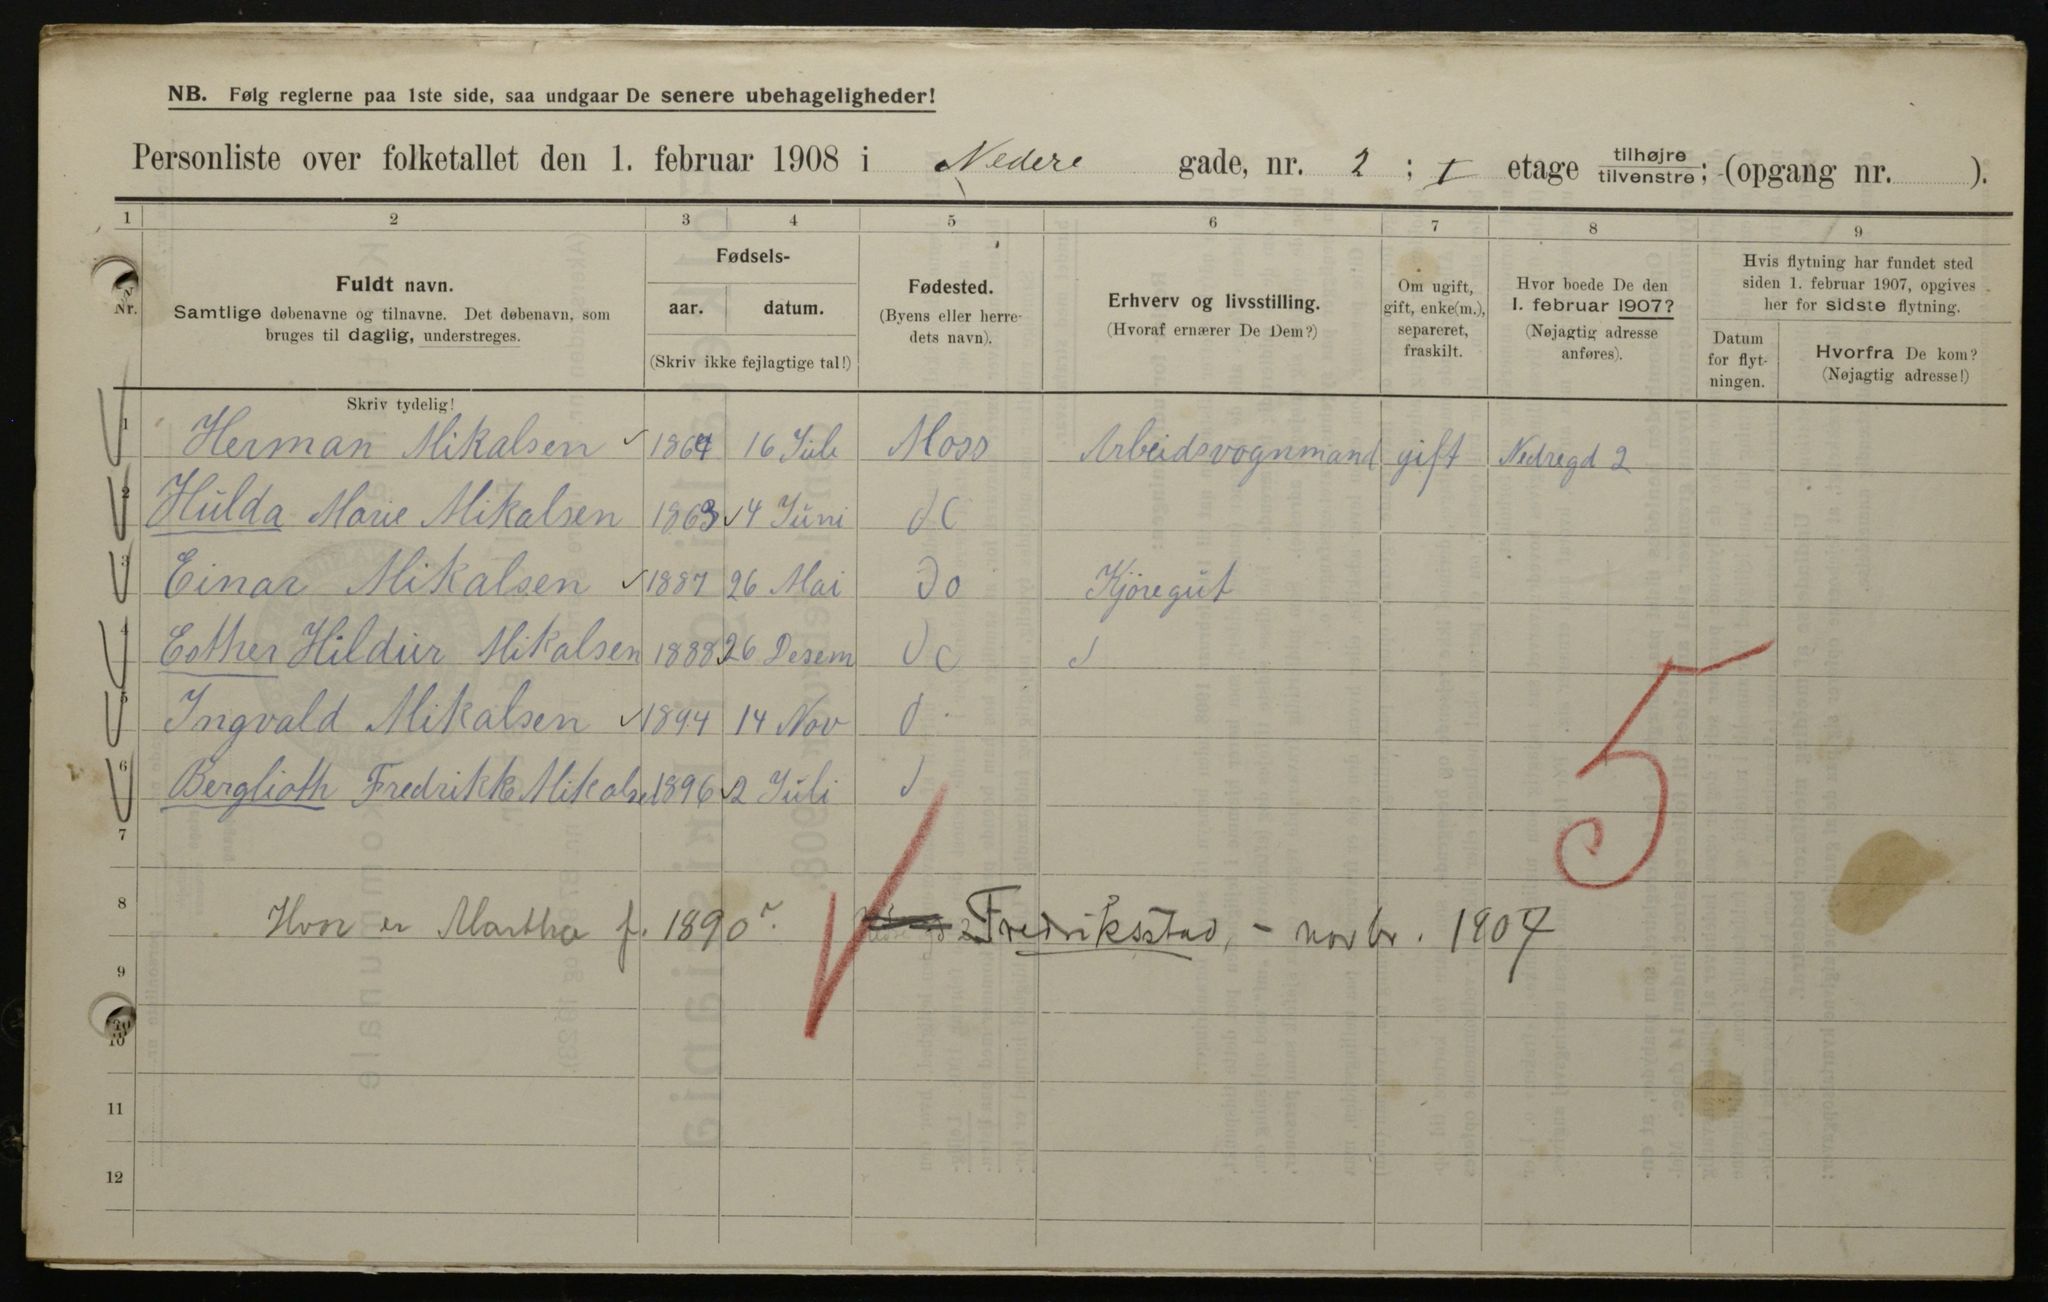 NB. Følg reglerne paa 1ste side, saa undgaar De senere ubehageligheder!
Personliste over folketallet den 1. februar 1908 i Nedere gade, nr. 2 ; I etage tilhøjre tilvenstre; (opgang nr. ).
1 2 3 4 5 6 7 8 9
Nr.
Fuldt navn.
Samtlige døbenavne og tilnavne. Det døbenavn, som
bruges til daglig, understreges.
Skriv tydelig!
Fødsels-
aar. datum.
(Skriv ikke fejlagtige tal!)
Fødested.
(Byens eller herre-
dets navn).
Erhverv og livsstilling.
(Hvoraf ernærer De Dem?)
Om ugift,
gift, enke(m.),
separeret,
fraskilt.
Hvor boede De den
1. februar 1907?
(Nøjagtig adresse
anføres).
Hvis flytning har fundet sted
siden 1. februar 1907, opgives
her for sidste flytning.
Datum
for flyt-
ningen.
Hvorfra De kom?
(Nøjagtig adresse!)
1 Herman Mikalsen 1864 16 Juli Moss Arbeidsvognmand gift Nedregd 2
2 Hulda Marie Mikalsen 1863 4 Juni do
3 Einar Mikalsen 1887 26 Mai Do Kjøregut
4 Esther Hildur Mikalsen 1888 26 Desem Do
5 Ingvald Mikalsen 1894 14 Nov
6 Berglioth Fredrikke Mikalse 1896 2 Juli
7
8 Hvor er Martha f. 1890? Fredriksstad, - novbr. 1907
9
10
11
12
5